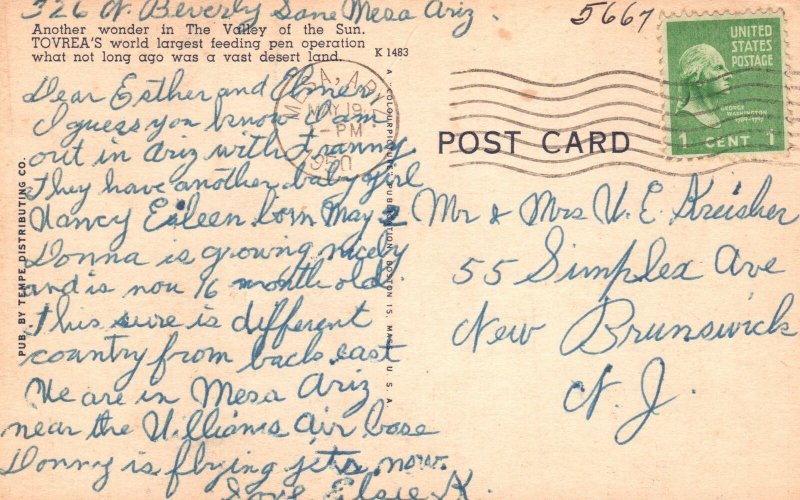 326 N. Beverly Lane Mesa Ariz.
5667
Another wonder in The Valley of the Sun.
TOVREA'S world largest feeding pen operation
what not long ago was a vast desert land.
K 1483
Dear Esther and Elmer
I guess you know I am
out in Ariz with Franny
They have another baby girl
Nancy Eileen born May 2
Donna is growing nicely
and is now 16 month old.
This sure is different
country from back east
We are in Mesa Ariz
near the Williams Air base
Donny is flying jets now.
Love Elsie K.
PUB. BY TEMPE DISTRIBUTING CO.
A COLOURPICTURE PUBLICATION BOSTON 15, MASS., U. S. A.
MESA, ARIZ.
MAY 19
-PM
1950
UNITED
STATES
POSTAGE
GEORGE
WASHINGTON
1 CENT 1
POST CARD
Mr & Mrs W. E. Kreisher
55 Simplex Ave
New Brunswick
N. J.